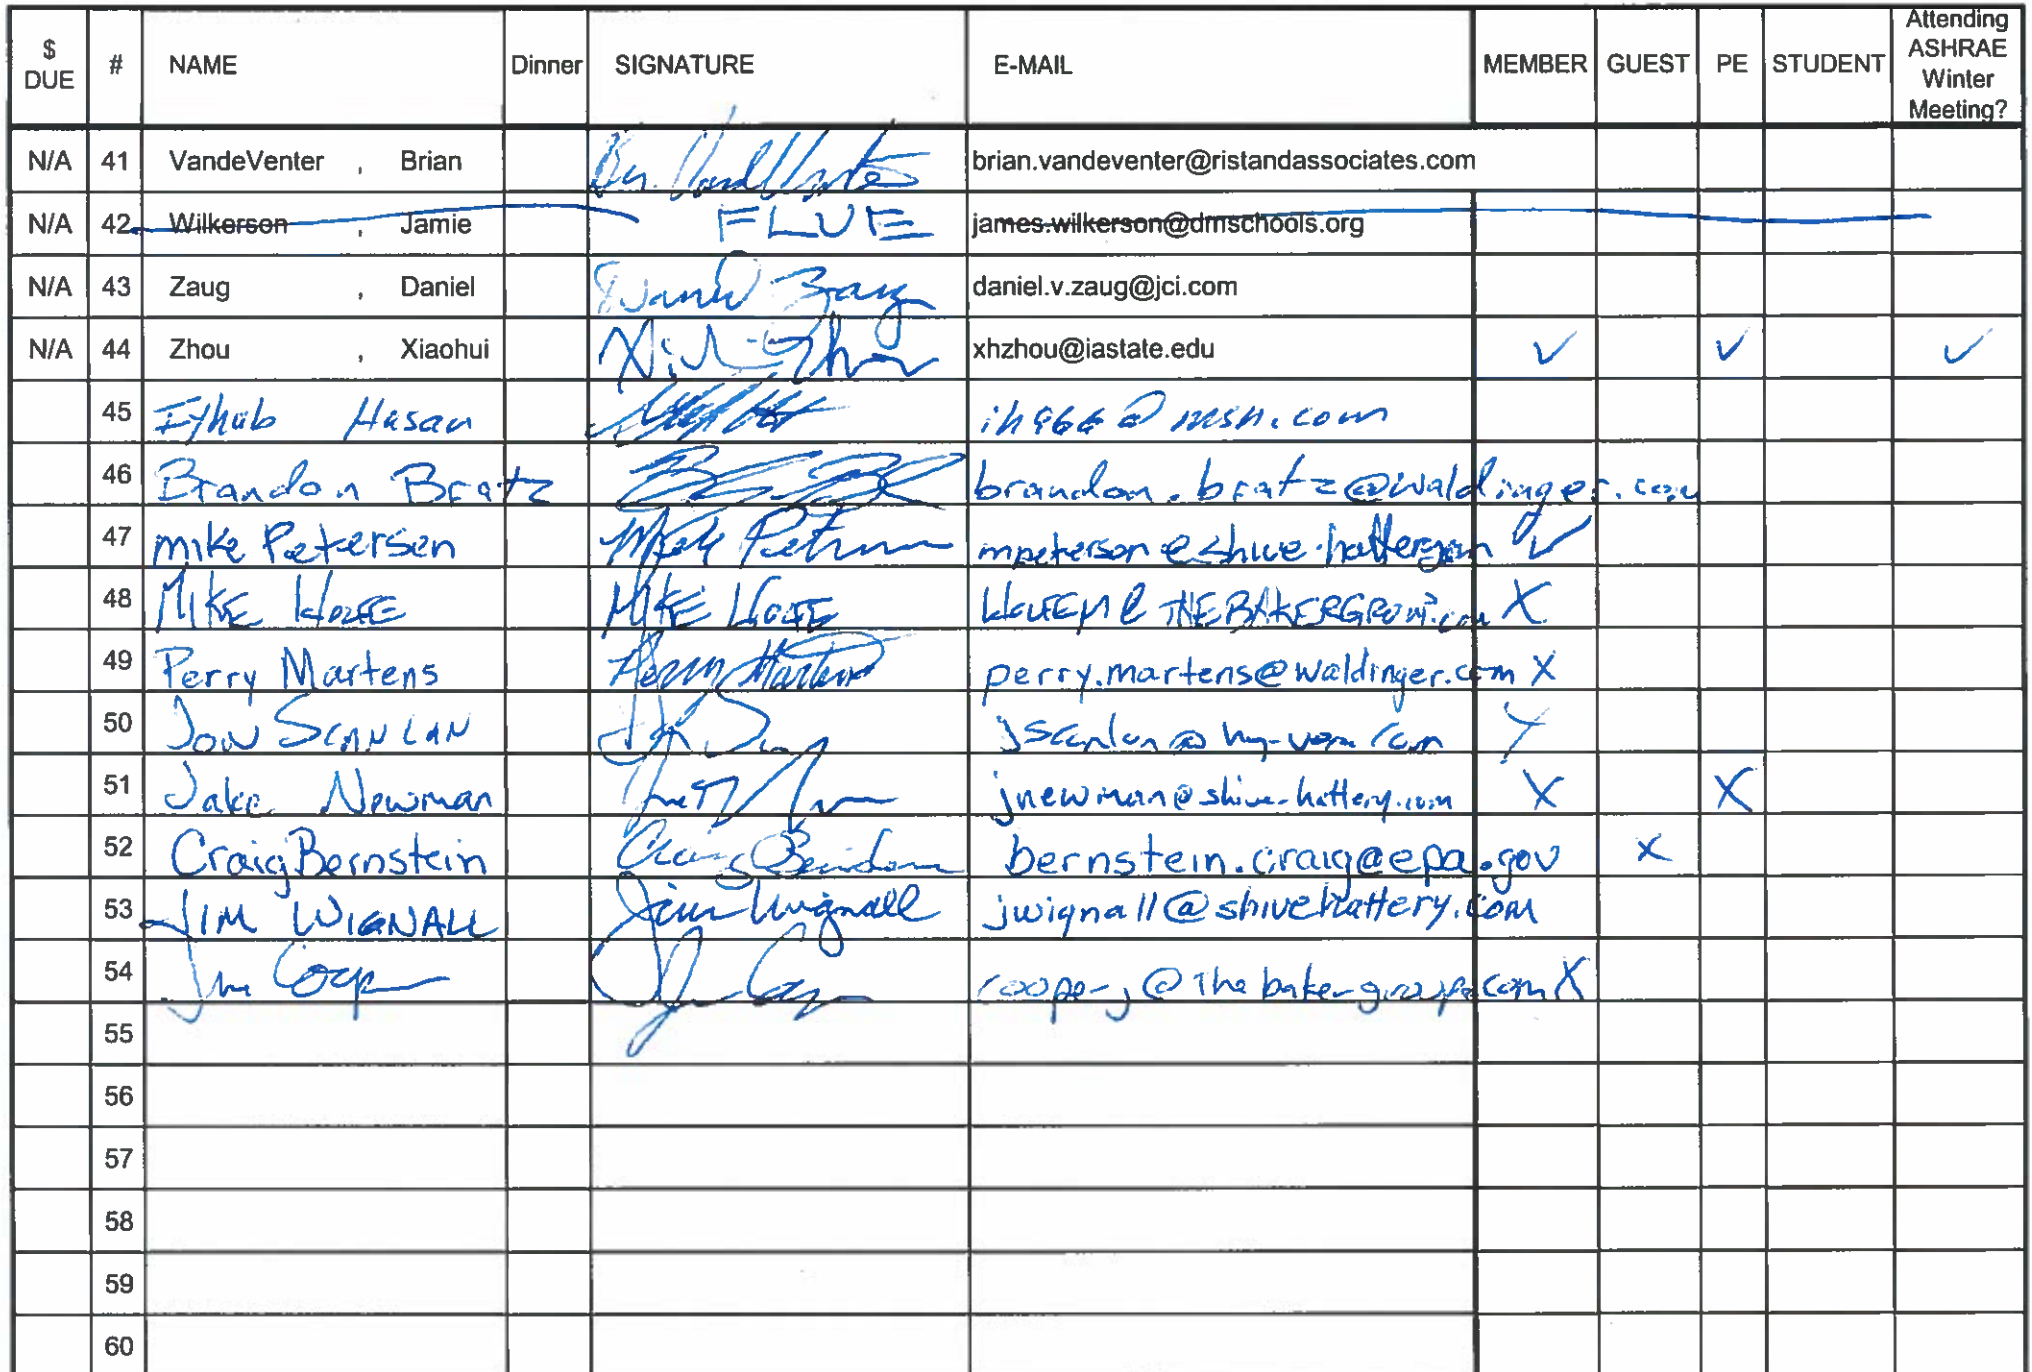 $ DUE # NAME Dinner SIGNATURE E-MAIL MEMBER GUEST PE STUDENT Attending ASHRAE Winter Meeting?
N/A 41 VandeVenter , Brian brian.vandeventer@ristandassociates.com
N/A 42 Wilkerson , Jamie FLUE james.wilkerson@dmschools.org
N/A 43 Zaug , Daniel Daniel Zaug daniel.v.zaug@jci.com
N/A 44 Zhou , Xiaohui xhzhou@iastate.edu ✓ ✓ ✓
45 Hasan @msn.com
46 Brandon Bratz brandon.bratz@waldinger.com
47 Mike Petersen Mike Petersen mpeterson@shive-hattery.com ✓
48 MIKE MIKE @THEBAKERGROUP.com X
49 Perry Martens Perry Martens perry.martens@waldinger.com X
50 Jon SCANLAN jscanlan@hy-vee.com X
51 Jake Newman jnewman@shive-hattery.com X X
52 Craig Bernstein Craig Bernstein bernstein.craig@epa.gov X
53 JIM WIGNALL Jim Wignall jwignall@shivehattery.com
54 Jim Cooper cooperj@thebakergroup.com X
55
56
57
58
59
60